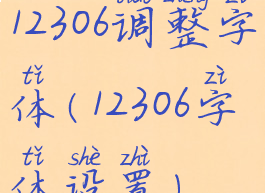 12306调整字
tǐ zì
体(12306字
tǐ shè zhì
体设置)